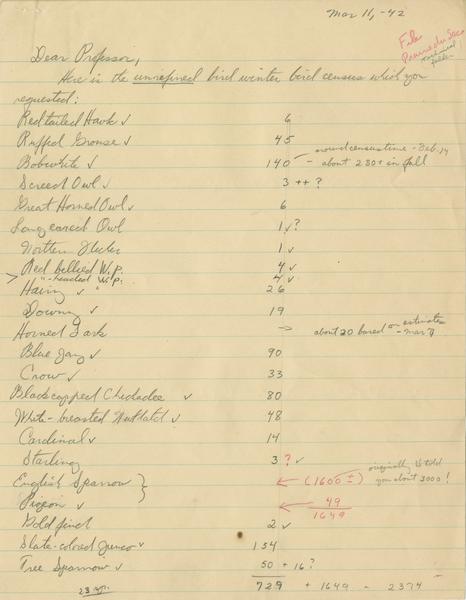 Mar 11, -42
File
Prairie du Sac
Dear Professor,
Here is the unrefined bird winter bird census which you
requested:
Red tailed Hawk ✓ 6
Ruffed Grouse ✓ 45
Bobwhite ✓ 140 - around census time - Feb. 14
about 230+ in fall
Screech Owl ✓ 3 ++ ?
Great Horned Owl ✓ 6
Long eared Owl 1 ✓?
Northern Flicker 1 ✓
Red bellied W.P. 4 ✓
> " -headed W.P. 4 ✓
Hairy ✓ " 26
Downy ✓ 19
Horned Lark → about 20 based on estimates
- Mar 7
Blue Jay ✓ 90
Crow ✓ 33
Black capped Chickadee ✓ 80
White-breasted Nuthatch ✓ 48
Cardinal ✓ 14
Starling 3 ? ✓
English Sparrow } ← (1600 ±) originally I told
you about 3000!
Pigeon ✓ } ← 49
1649
Goldfinch 2 ✓
Slate-colored Junco ✓ 154
Tree Sparrow ✓ 50 + 16?
23 sp. 729 + 1649 - 2374